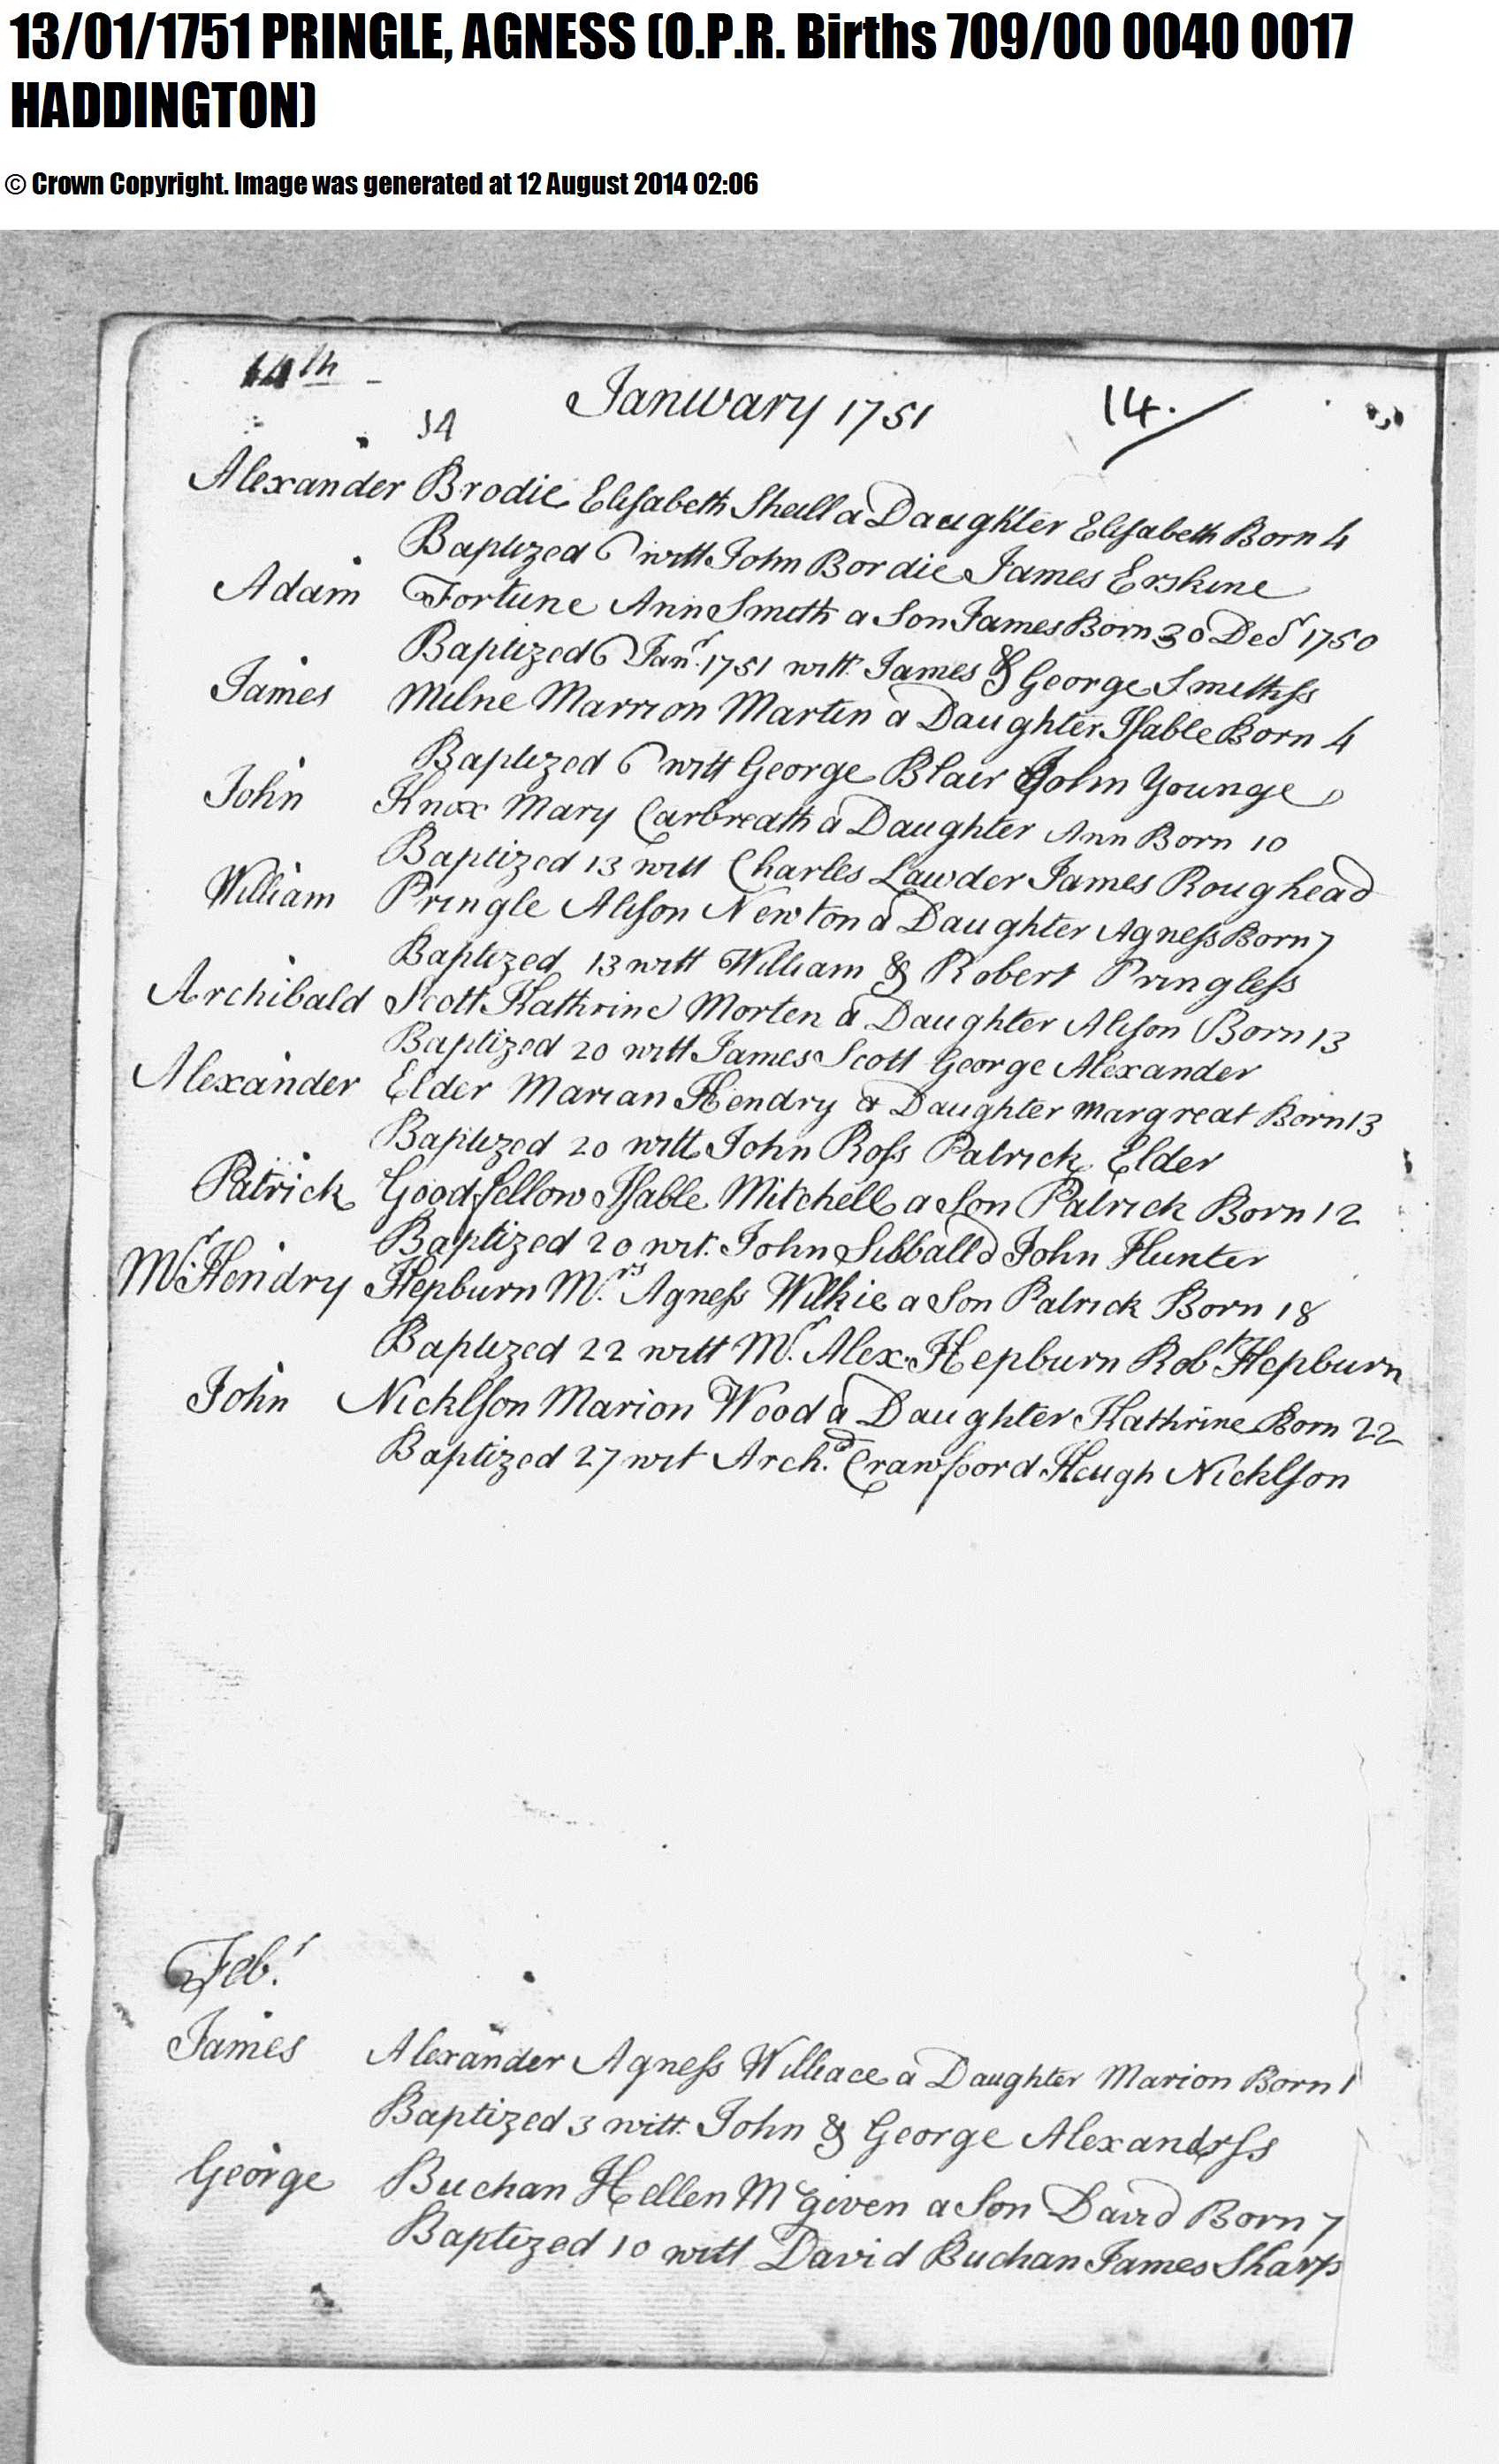 13/01/1751 PRINGLE, AGNESS (O.P.R. Births 709/00 0040 0017
HADDINGTON)
© Crown Copyright. Image was generated at 12 August 2014 02:06
14th
14
Janwary 1751
14.
Alexander Brodie Elisabeth Sheill a Daughter Elisabeth Born 4
Baptized 6 witt John Bordie James Erskine
Adam Fortune Ann Smith a Son James Born 30 Decr 1750
Baptized 6 Janr. 1751 witt. James & George Smithss
James Milne Marrion Martin a Daughter Isable Born 4
Baptized 6 witt George Blair John Younge
John Knox Mary Carbreath a Daughter Ann Born 10
Baptized 13 witt Charles Lawder James Roughead
William Pringle Alison Newton a Daughter Agness Born 7
Baptized 13 witt William & Robert Pringless
Archibald Scott Kathrine Morten a Daughter Alison Born 13
Baptized 20 witt James Scott George Alexander
Alexander Elder Marian Hendry a Daughter Margreat Born 13
Baptized 20 witt John Ross Patrick Elder
Patrick Goodfellow Isable Mitchell a Son Patrick Born 12
Baptized 20 wit. John Sibbald John Hunter
Mr. Hendry Hepburn Mrs. Agness Wilkie a Son Patrick Born 18
Baptized 22 witt Mr. Alex. Hepburn Robt Hepburn
John Nicklson Marion Wood a Daughter Kathrine Born 22
Baptized 27 wit Archd. Crawfoord Heugh Nicklson
Febr.
James Alexander Agness Williace a Daughter Marion Born 1
Baptized 3 witt. John & George Alexandrss
George Buchan Hellen Mcgiven a Son David Born 7
Baptized 10 witt David Buchan James Sharp